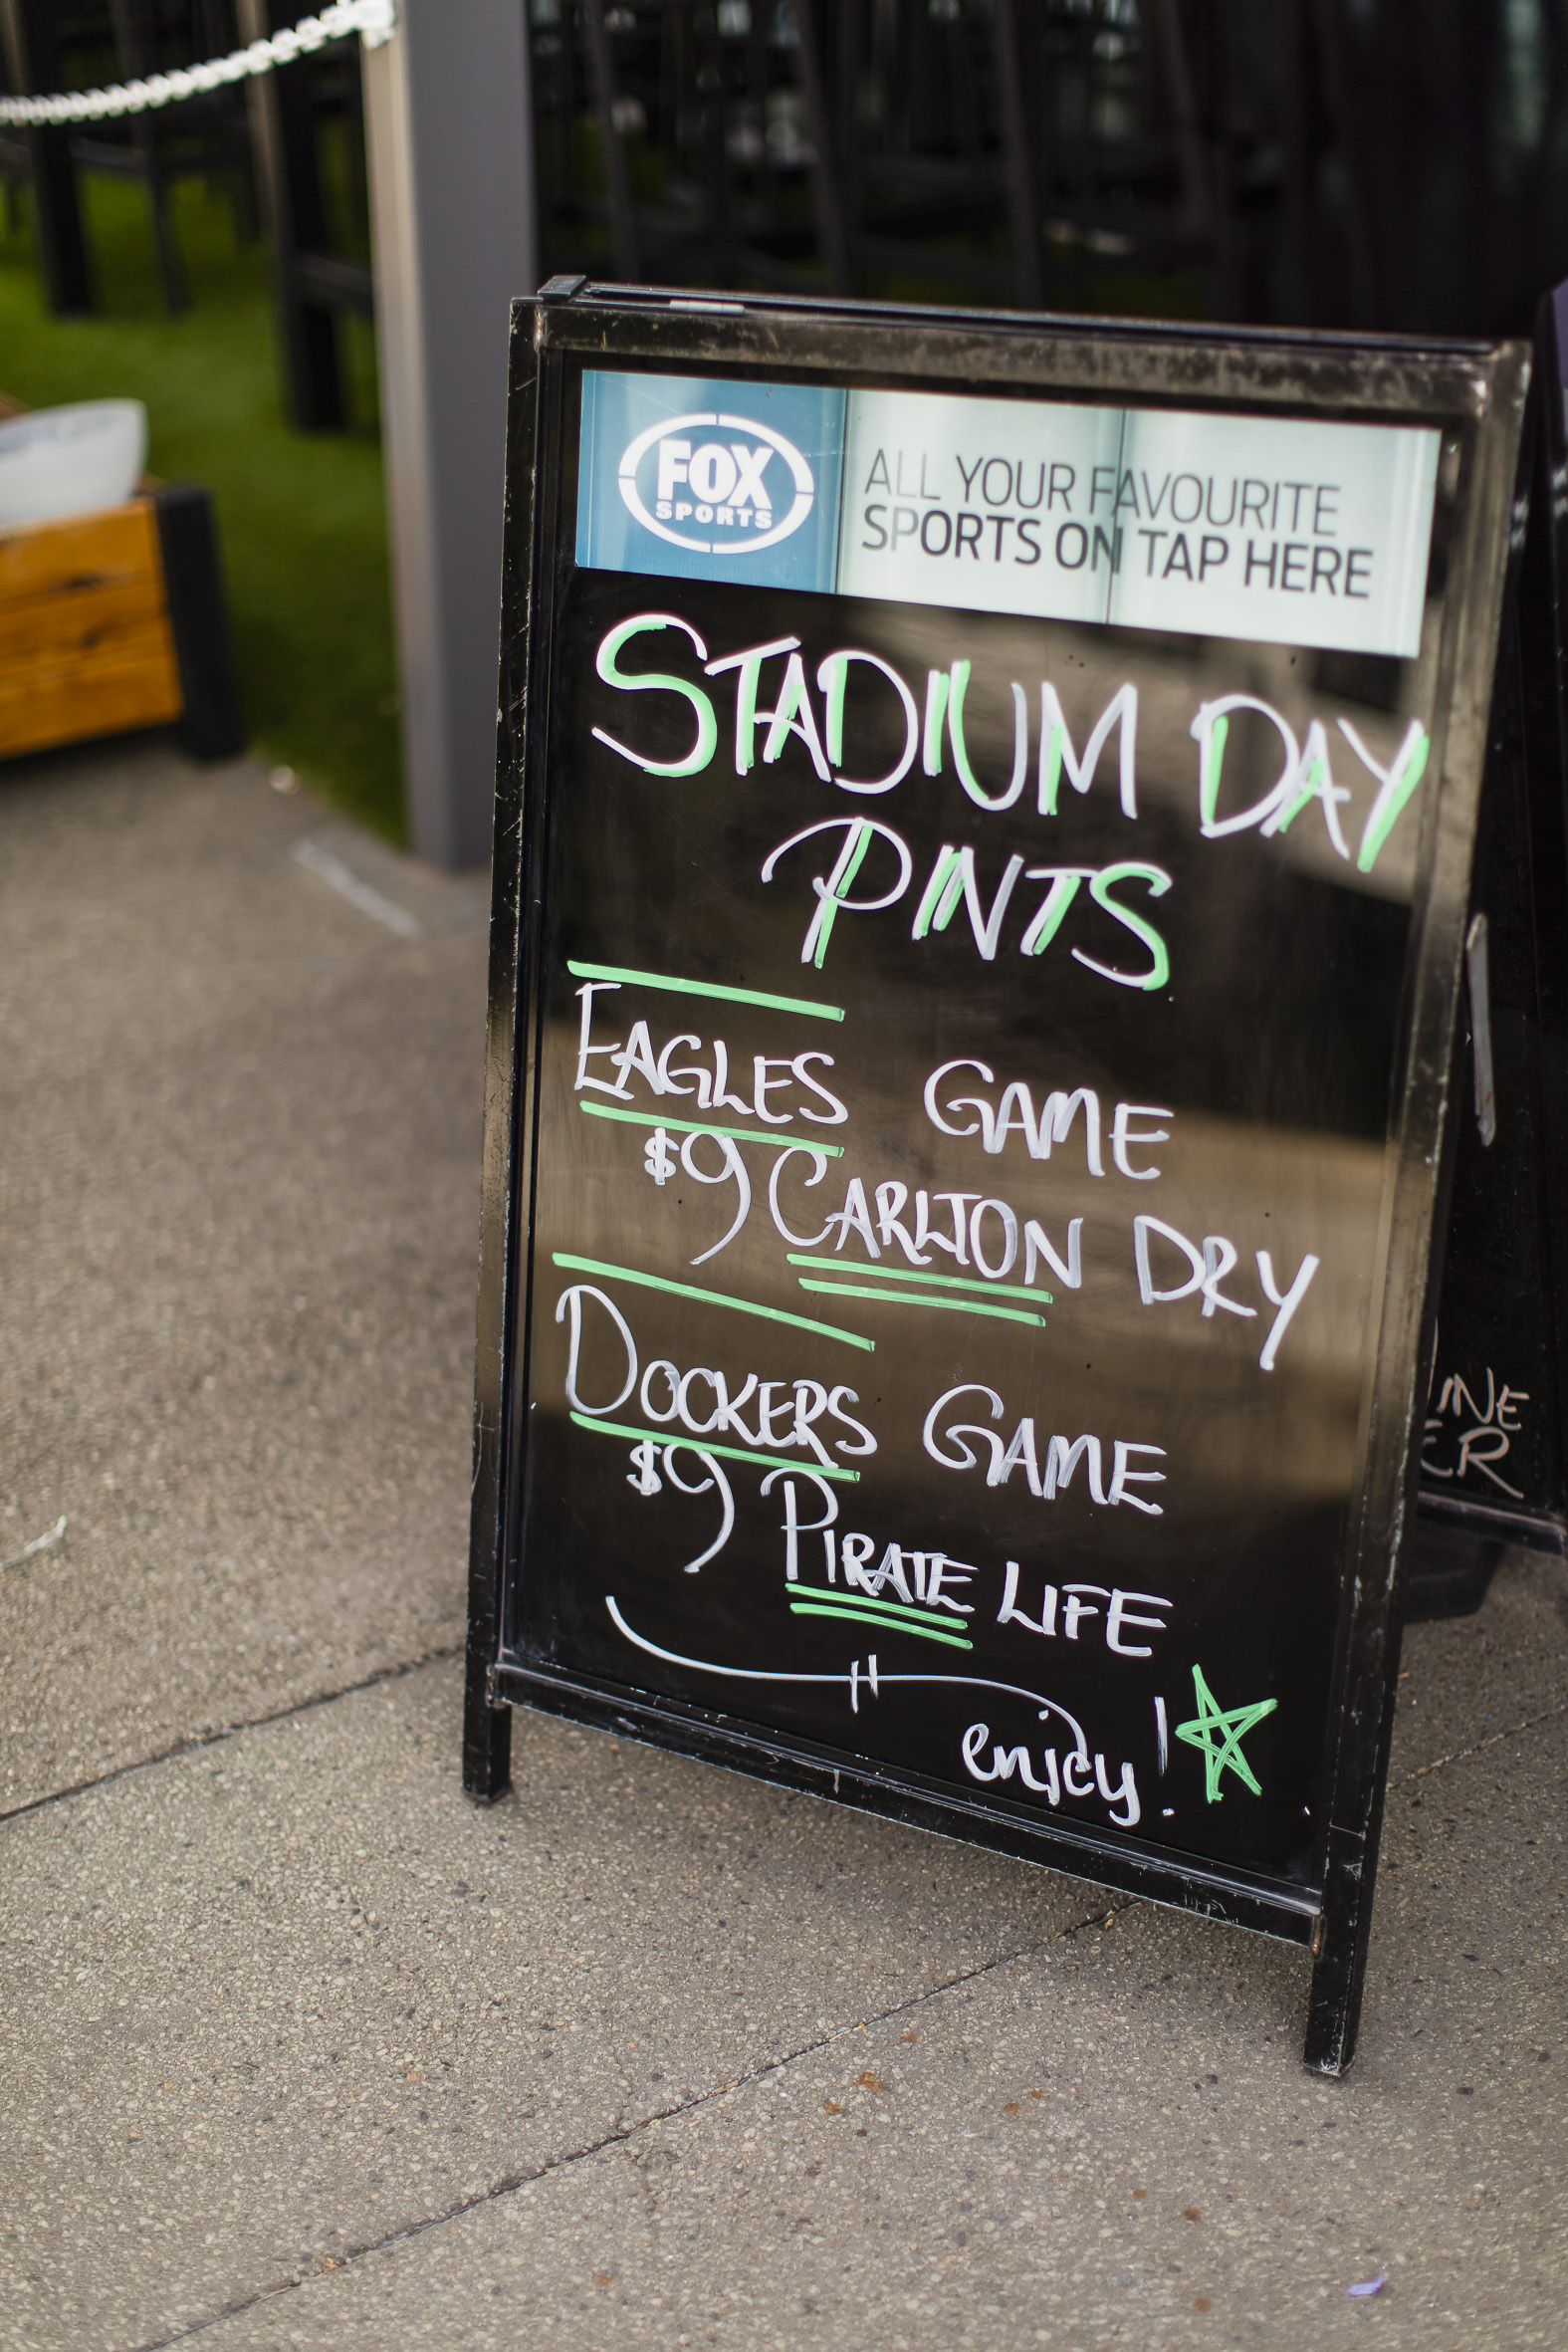 FOX
SPORTS
ALL YOUR FAVOURITE
SPORTS ON TAP HERE
STADIUM DAY
PINTS
EAGLES GAME
$9 CARLTON DRY
DOCKERS GAME
$9 PIRATE LIFE
enjoy!